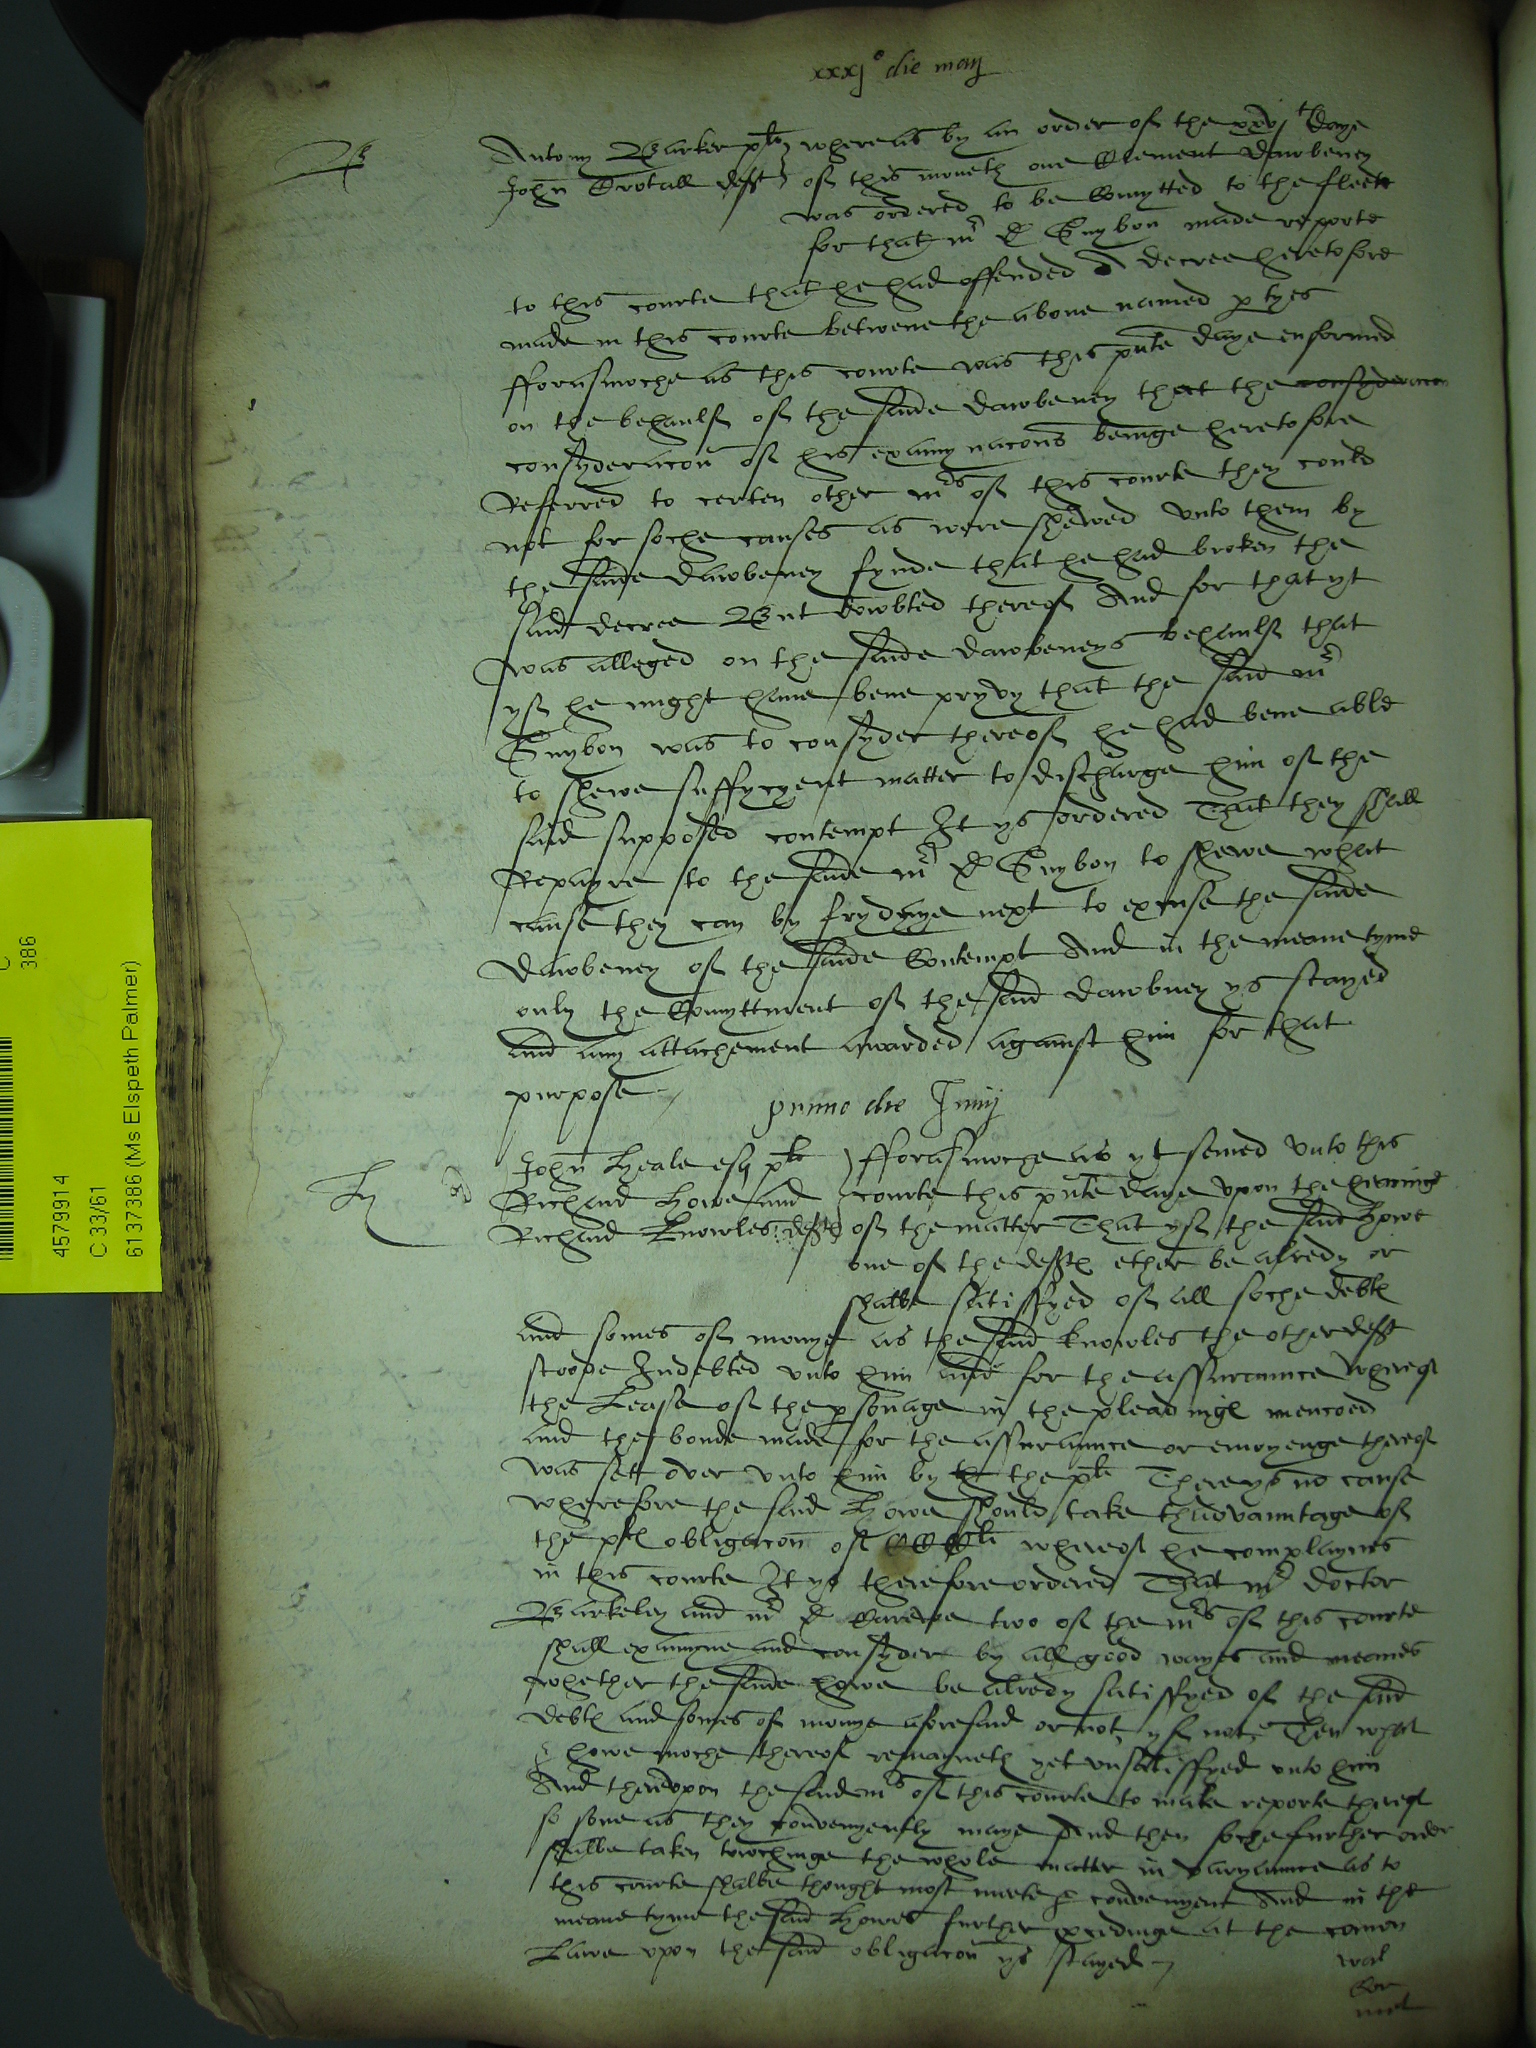 xxxj° die maij
B
Antony Barker plt whereas by an order of the xxvjth daye
John Trotall deft of this moneth one Clement Dawbeney
was ordered to be Comytted to the fleete
for that mr D Guybon made reporte
to this courte that he had offended a decree heretofore
made in this courte betwene the above named ptyes
fforasmoche as this courte was this pnte daye enformed
on the behaulf of the saide Dawbeney that the consyderacon
consyderacon of his examynacons beinge heretofore
Referred to certen other mrs of this courte they could
not for soche causes as were shewed unto them by
the saide Dawbeney fynde that he had broken the
said decree But dowbted thereof And for that yt
was alleged on the saide Dawbeneys behaulf that
yf he might have bene pryvy that the said mr
Guybon was to consyder thereof he had bene able
to shewe suffycyent matter to discharge him of the
said supposed contempt It ys ordered That they shall
Repayre to the saide mr D Guybon to shewe what
cause they can by frydaye next to excuse the saide
Dawbeney of the saide Contempt And in the meane tyme
only the Comyttment of the said Dawbney ys stayed
and any attachement awarded against him for that
purpose
primo die Junij
Hy
John Heale esq plt fforasmoche as yt semed unto this
Richard Howe and courte this pnte daye upon the hearinge
Richard Knowles defts of the matter That yf the said Howe
one of the defts ether be alredy or
shalbe satisfyed of all soche debts
and somes of money as the said knowles the other deft
stoode Indebted unto him and for the assuraunce whereof
the Lease of the psonage in the pleadings mencoed
and the bonde made for the assuraunce or enioyenge thereof
was sett over unto him by the the plt There ys no cause
wherefore the said Howe should take thadvauntage of
the obligacon of whereof he complaynes
in this courte It ys therefore ordered That mr doctor
Barkeley and mr D Carewe two of the mrs of this courte
shall examyne and consyder by all good wayes and meanes
whether the saide howe be alredy satisfyed of the said
debts and somes of money aforesaid or not, yf not, Then what
& howe moche thereof remayneth yet unsatisfyed unto him
And thereupon the said mrs of this courte to make reporte thereof
so sone as they convenyently maye And then soche further order
shalbe taken towchinge the whole matter in varyaunce as to
this courte shalbe thought most meete & convenyent And in the
meane tyme the said Howes further pcedinge at the comen
Lawe upon the said obligacon ys stayed
wal
Cor
C
386
4579914
C 33/61
6137386 (Ms Elspeth Palmer)